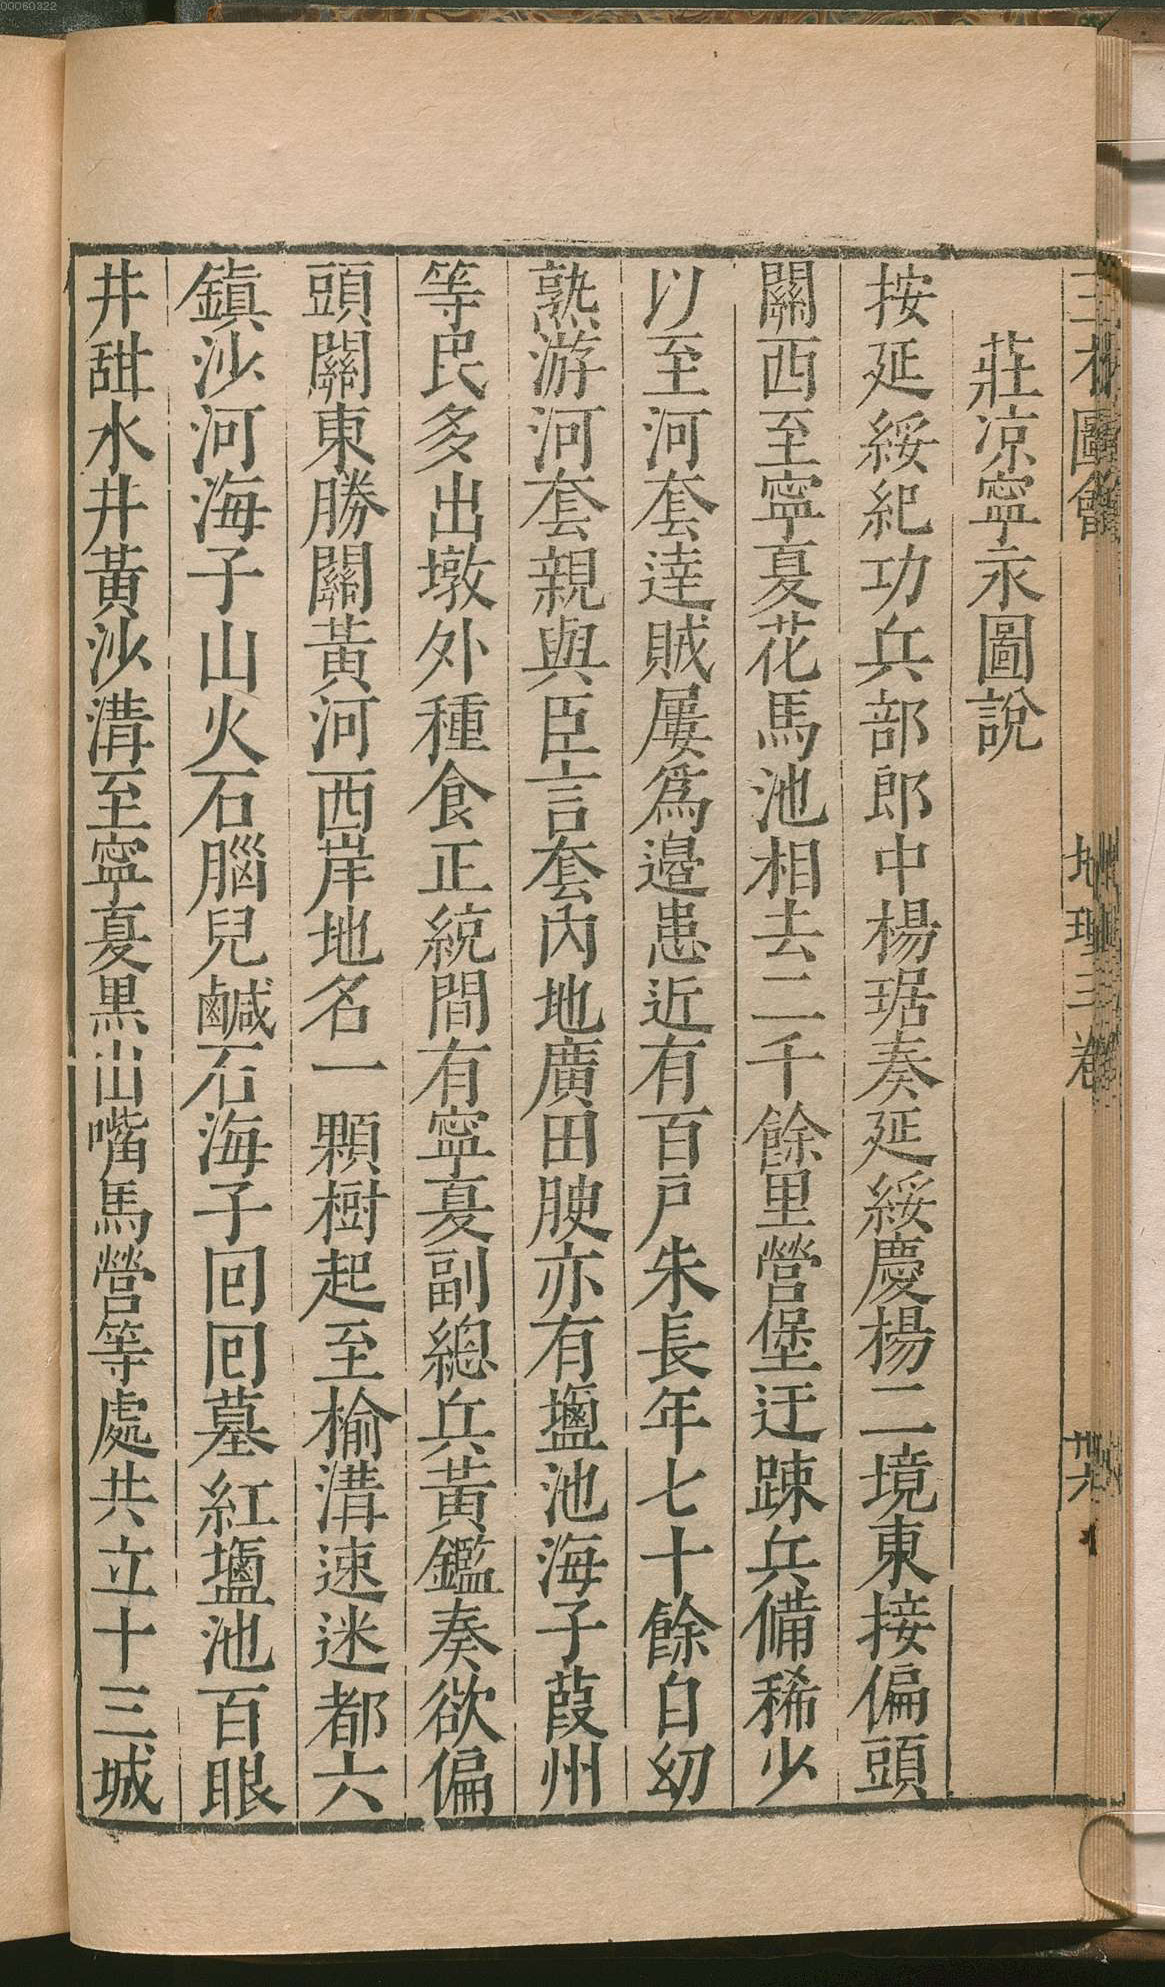 00060322
三才圖會 地理三卷
莊凉寧永圖說
按延綏紀功兵部郎中楊琚奏延綏慶楊二境東接偏頭
關西至寧夏花馬池相去二千餘里營堡迂踈兵備稀少
以至河套達賊屢爲邉患近有百戶朱長年七十餘自幼
熟游河套親與臣言套內地廣田腴亦有鹽池海子葭州
等民多出墩外種食正統間有寧夏副總兵黃鑑奏欲偏
頭關東勝關黃河西岸地名一顆樹起至榆溝速迷都六
鎮沙河海子山火石腦兒鹹石海子回回墓紅鹽池百眼
井甜水井黃沙溝至寧夏黑山嘴馬營等處共立十三城